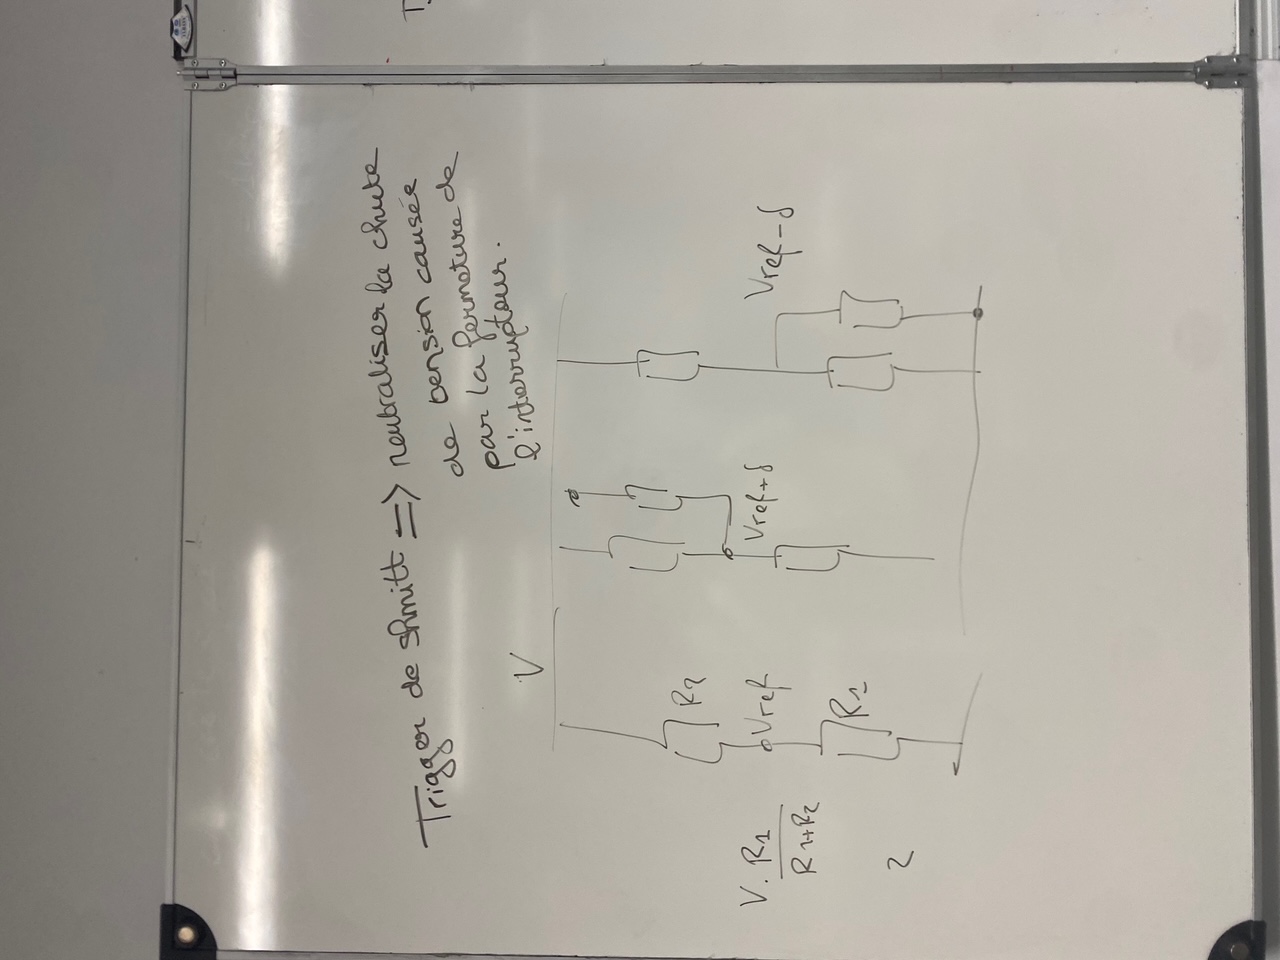 Trigger de shmitt => neutraliser la chute
de tension causée
par la fermeture de
l'interrupteur.
V
R2
V. R1
R1+R2
Vref
Vref+δ
Vref-δ
R1
2